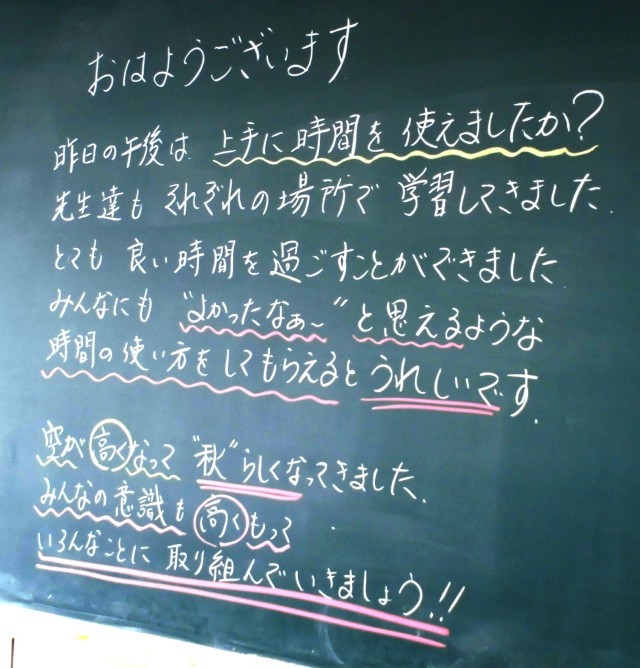 おはようございます
昨日の午後は 上手に時間を使えましたか?
先生達も それぞれの場所で 学習してきました.
とても 良い時間を過ごすことができました
みんなにも "よかったなぁ〜" と思えるような
時間の使い方をしてもらえると うれしいです.
空が高くなって "秋"らしくなってきました.
みんなの意識も高くもって
いろんなことに 取り組んでいきましょう!!